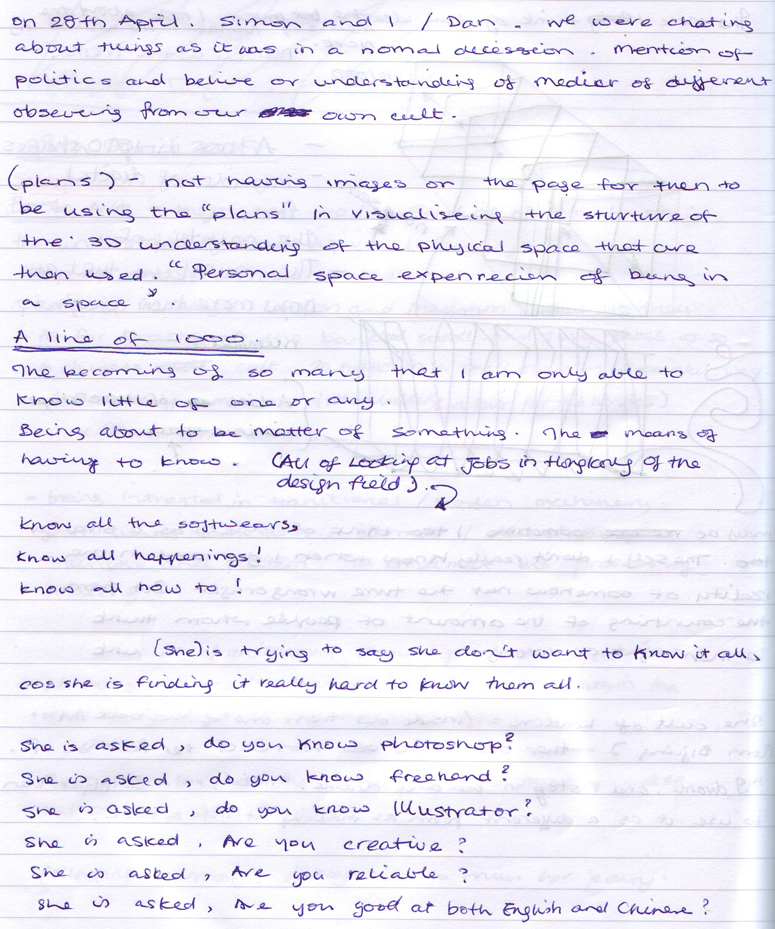 on 28th April. Simon and I / Dan. we were chating
about things as it was in a nomal decession. mention of
politics and belive or understanding of mediar of different
obseveing from our own cult.
(plans) - not having images on the page for then to
be using the "plans" in visualiseing the sturture of
the 3D understanding of the physical space that are
then used. "Personal space expenrecien of being in
a space".
A line of 1000.
The becoming of so many that I am only able to
know little of one or any.
Being about to be matter of something. The means of
having to know. (All of Looking at jobs in Hongkong of the
design field).
know all the softwears,
know all happenings!
know all how to!
(she) is trying to say she don't want to know it all,
cos she is finding it really hard to know them all.
She is asked, do you know photoshop?
She is asked, do you know freehand?
She is asked, do you know Illustrator?
She is asked, Are you creative?
She is asked, Are you reliable?
She is asked, Are you good at both English and Chinese?